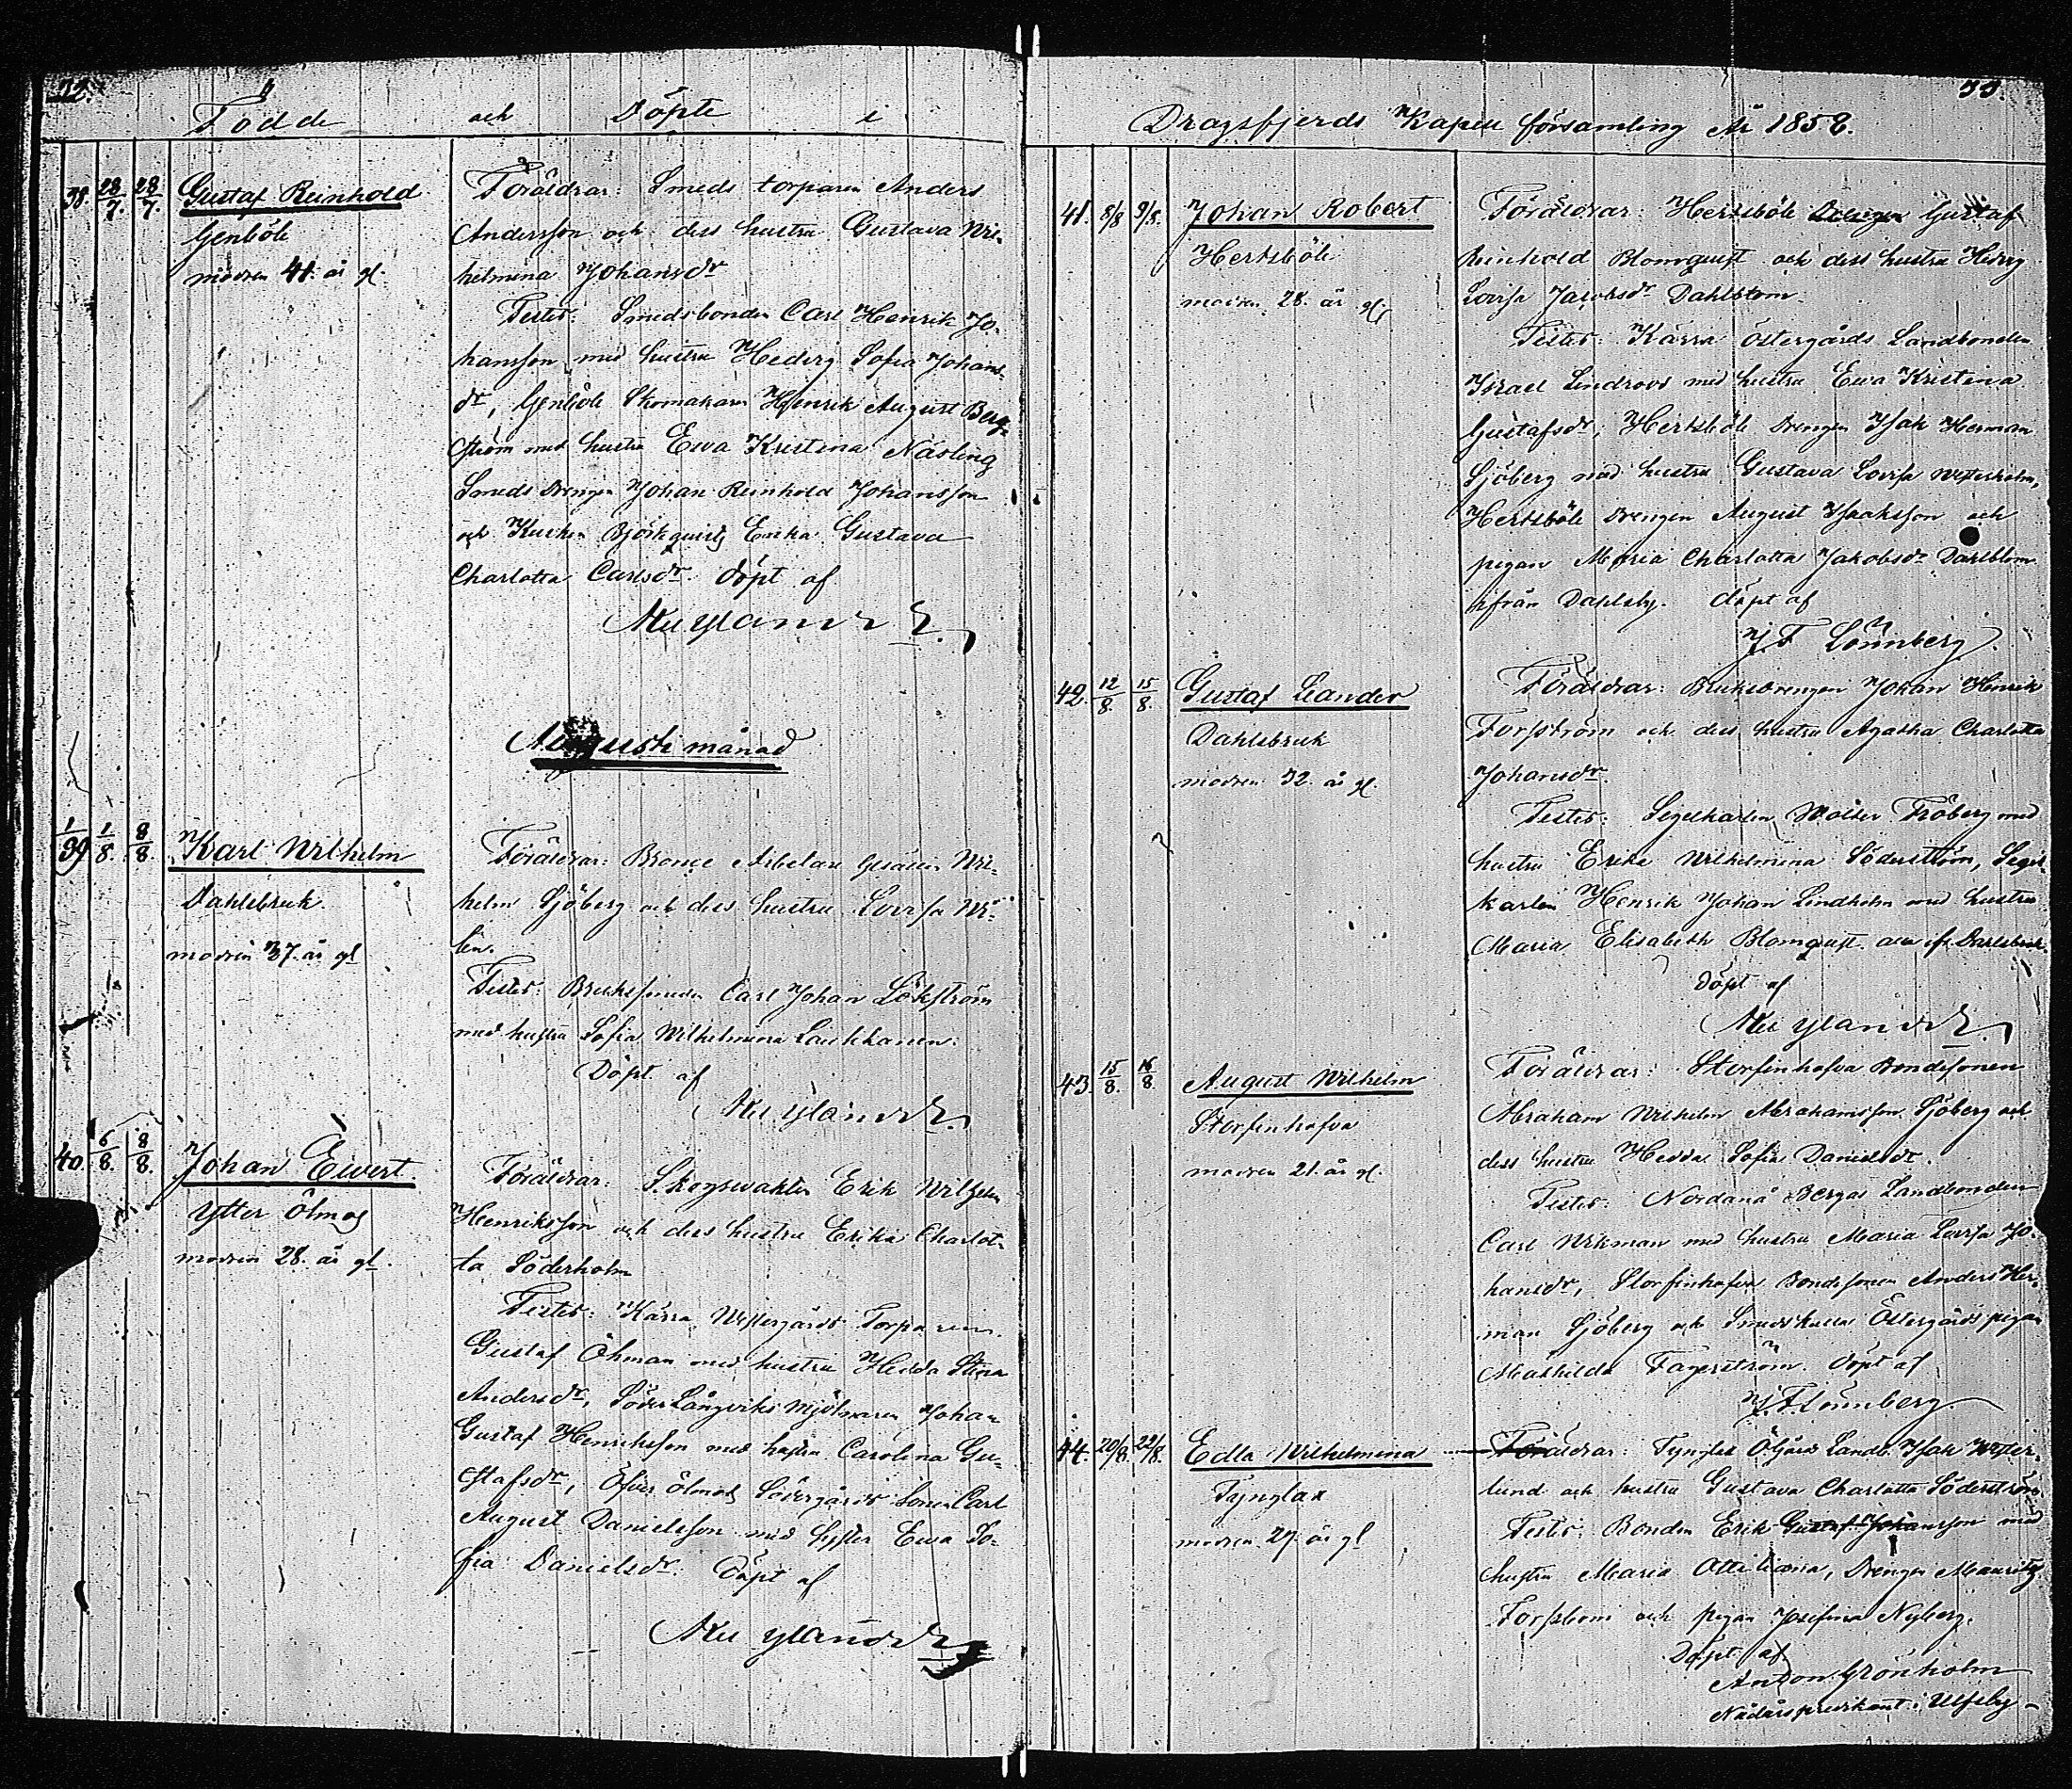 32.
Födde och Döpte i
38. 28/7. 28/7. Gustaf Reinhold
Genböle
modren 41. år gl.
Föräldrar: Smeds torparen Anders
Andersson och dess hustru Gustava Wil-
helmina Johansdr
Testes: Smedsbonden Carl Henrik Jo-
hansson med hustru Hedvig Sofia Johans-
dr, Genböle Skomakaren Henrik August Berg-
ström med hustru Ewa Kristina Näsling
Smeds Drengen Johan Reinhold Johansson
och Björkqvist Erika Gustava
Charlotta Carlsdr. döpt af
Augusti månad
1/39 1/8 8/8 Karl Wilhelm
Dahlsbruk.
modren 37. år gl
Föräldrar: Gesällen Wil-
helm Sjöberg och dess hustru Lovisa
Testes: Brukssmeden Carl Johan Lökström
med hustru Sofia Wilhelmina
Döpt af
40. 6/8. 8/8. Johan Eivert.
Ytter Ölmos
modren 28. år gl.
Föräldrar: Skogvakten Erik Wilhelm
Henriksson och dess hustru Erika Charlot-
ta Söderholm
Testes: Kärra Westergårds Torparen
Gustaf Öhman med hustru Hedda Stina
Andersdr, Söder Långviks Mjölnaren Johan
Gustaf Henriksson med hustru Carolina Gu-
stafsdr, Öfver Ölmos Södergårds Sonen Carl
August Danielsson med Syster Ewa So-
fia Danielsdr. Döpt af
33.
Dragsfjerds Kapell församling År 1858.
41. 8/8 9/8. Johan Robert
Hertsböle
modren 28. år gl.
Föräldrar: Hertsböle Drengen Gustaf
Reinhold Blomqvist och dess hustru Hedvig
Lovisa Jacobsdr Dahlblom.
Testes: Kärra Östergårds Landbonden
Israel Lindroos med hustru Ewa Kristina
Gustafsdr, Hertsböle Drengen Isak Herman
Sjöberg med hustru Gustava Lovisa Westerholm,
Hertsböle Drengen August Isaksson och
pigan Maria Charlotta Jakobsdr Dahlblom
ifrån Dahlsby. döpt af
J. F. Lönnberg.
42. 12/8. 15/8. Gustaf Leander
Dahlsbruk
modren 32. år gl.
Föräldrar: Bruksdrengen Johan Henrik
Forsström och dess hustru Agatha Charlotta
Johansdr.
Testes: Segelkarlen Fröberg med
hustru Erika Wilhelmina Söderström, Segel-
karlen Henrik Johan Lindholm med hustru
Maria Elisabeth Blomqvist Dahlsbruk.
döpt af
43. 15/8. 16/8. August Wilhelm
Storfinhofva
modren 21. år gl.
Föräldrar: Storfinhofva Bondesonen
Abraham Wilhelm Abrahamsson Sjöberg och
dess hustru Hedda Sofia Danielsdr.
Testes: Nordanå Bergas Landbonden
Carl Wikman med hustru Maria Lovisa Jo-
hansdr, Storfinhofva Bondesonen Anders Her-
man Sjöberg och Östergårds pigan
Mathilda Fagerström. döpt af
J. F. Lönnberg
44. 20/8. 22/8. Edla Wilhelmina
Tynglax
modren 29. år gl
Föräldrar: Tynglax Landb. Isak Wester-
lund och hustru Gustava Charlotta Söderström
Testes: Bonden Erik Gustaf Johansson med
hustru Maria Ottiliana, Drengen Mauritz
Forsblom och pigan Josefina Nyberg.
Döpt af
Anton Grönholm
Nådårspredikant i Ulfsby